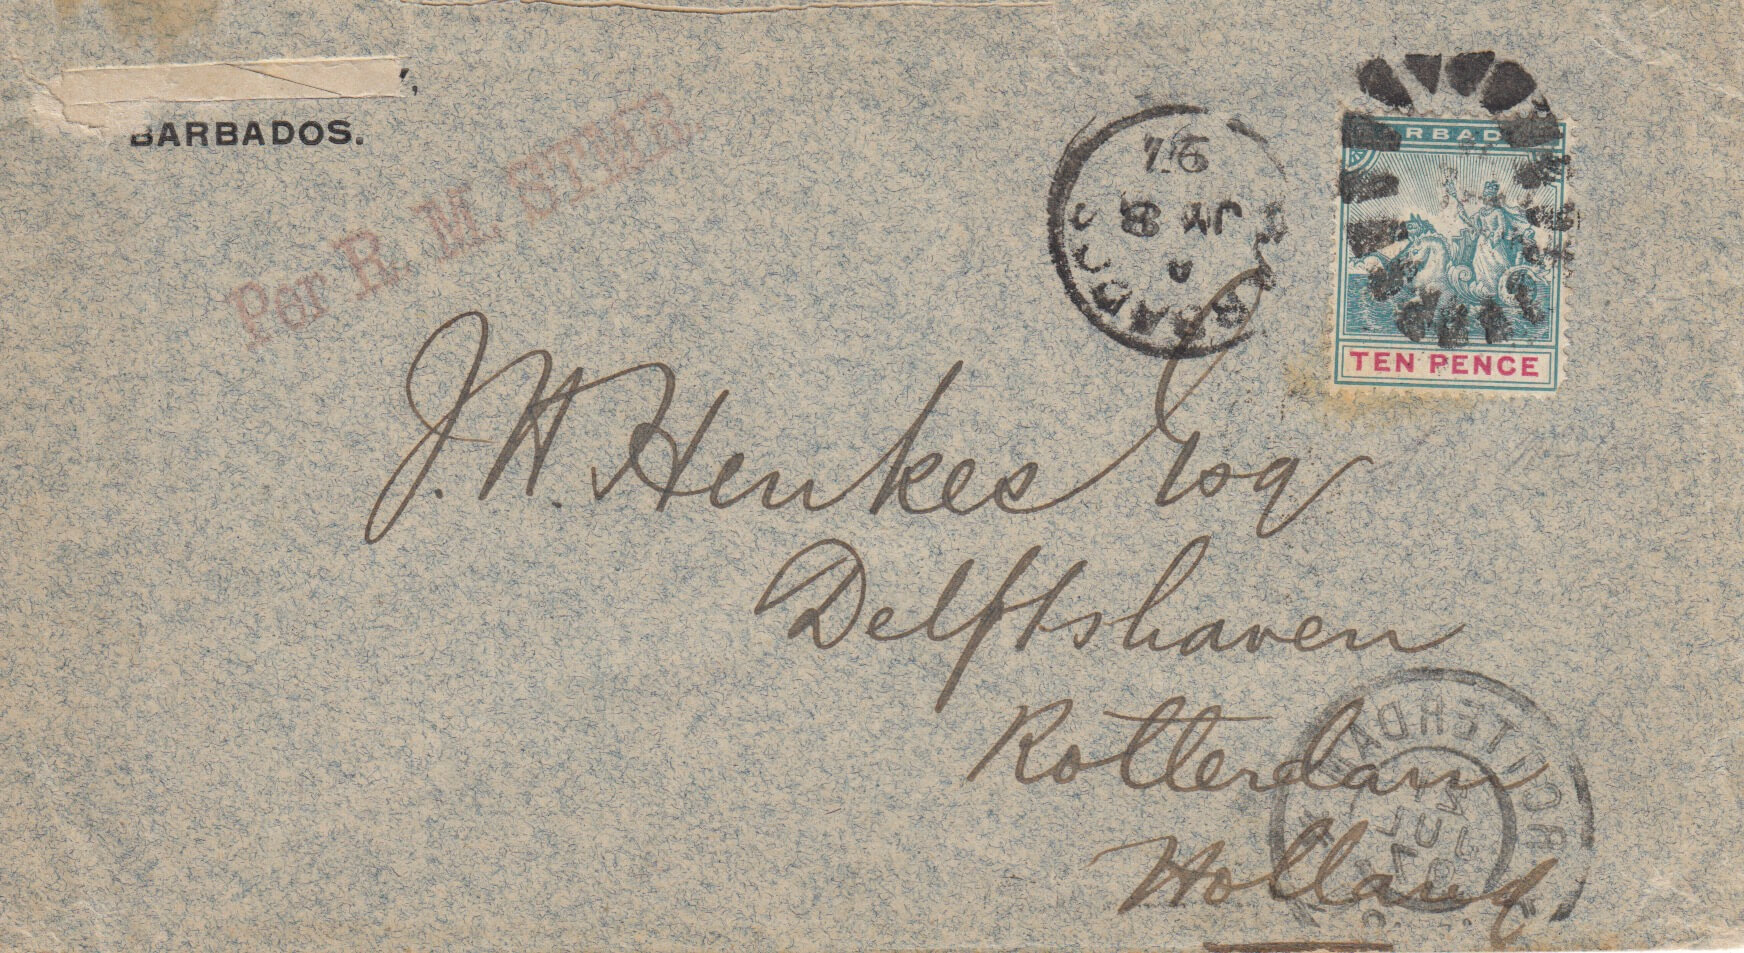 BARBADOS.
Per R. M. STMR.
BARBADOS
A
JY 8
97
BARBADOS
TEN PENCE
J. H. Henkes Esq
Delftshaven
Rotterdam
Holland
ROTTERDAM